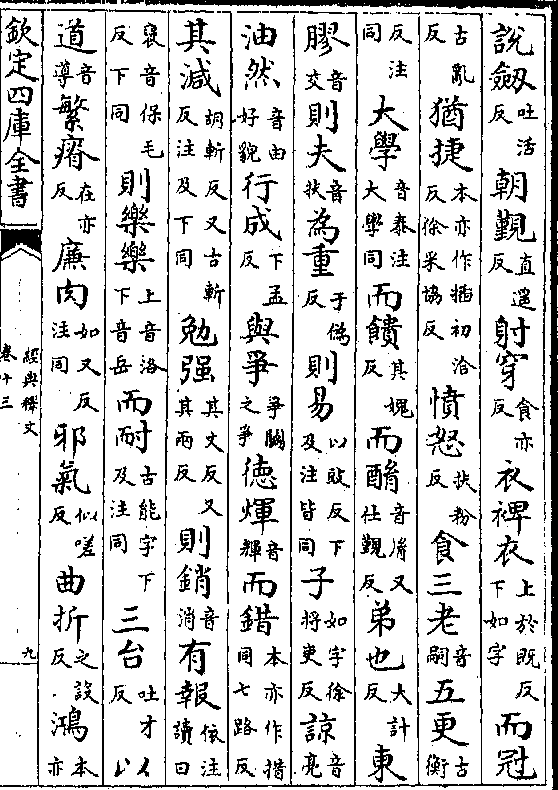 說劔吐活反朝覲直遥反射穿食亦反衣裨衣上於既反下如字而冠
古亂反猶捷本亦作插初洽反徐采協反憤怒扶粉反食三老音嗣五更古衡
反注同大學音泰注大學同而饋其媿反而酳音胤又仕覲反弟也大計反東
膠音交則夫音扶為重于偽反則易以豉反下及注皆同子如字徐將吏反諒音亮
油然音由好貌行成下孟反與爭爭鬭之爭德煇音輝而錯本亦作措同七路反
其減胡斬反又古斬反注及下同勉强其丈反又其兩反則銷音消有報依注讀曰
襃音保毛反下同則樂樂上音洛下音岳而耐古能字下及注同三台吐才反
道音導繁瘠在亦反廉肉如又反注同邪氣似嗟反曲折之設反鴻本亦
欽定四庫全書
經典釋文
卷十三
九